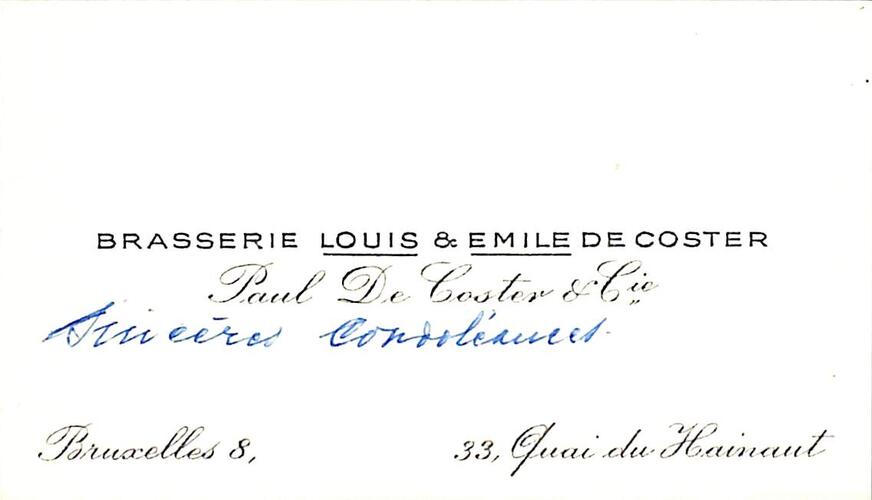 BRASSERIE LOUIS & EMILE DE COSTER
Paul De Coster & Cie
Sincères Condoléances.
Bruxelles 8, 33, Quai du Hainaut